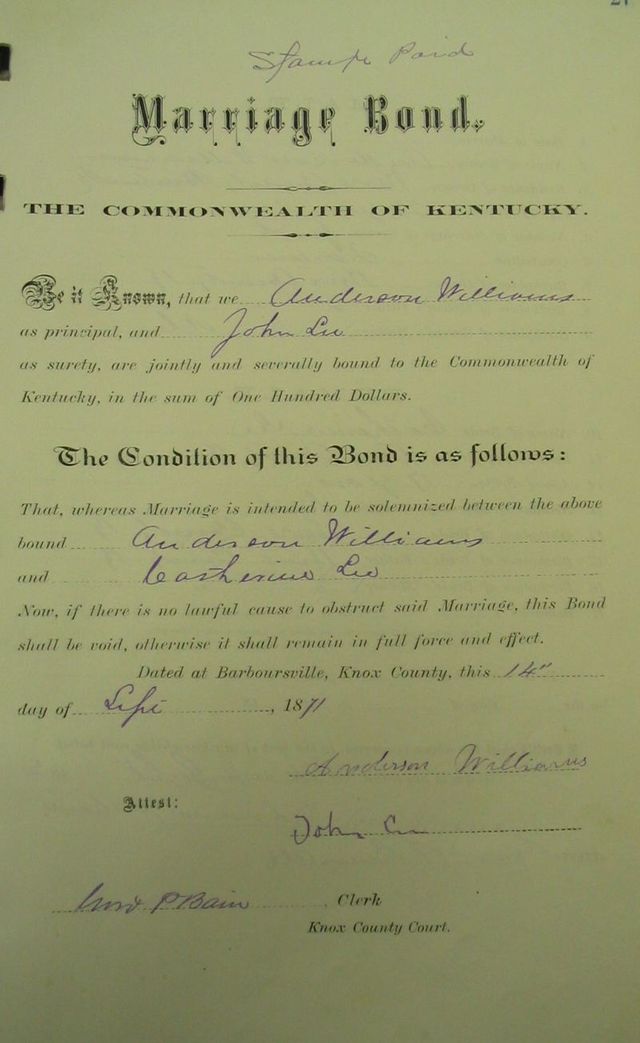 Stamp Paid
Marriage Bond.
THE COMMONWEALTH OF KENTUCKY.
Be it Known, that we Anderson Williams
as principal, and John Lee
as surety, are jointly and severally bound to the Commonwealth of
Kentucky, in the sum of One Hundred Dollars.
The Condition of this Bond is as follows:
That, whereas Marriage is intended to be solemnized between the above
bound Anderson Williams
and Catherine Lee
Now, if there is no lawful cause to obstruct said Marriage, this Bond
shall be void, otherwise it shall remain in full force and effect.
Dated at Barboursville, Knox County, this 14"
day of Sept, 1871
Anderson Williams
Attest:
John Lee
P Bain Clerk
Knox County Court.